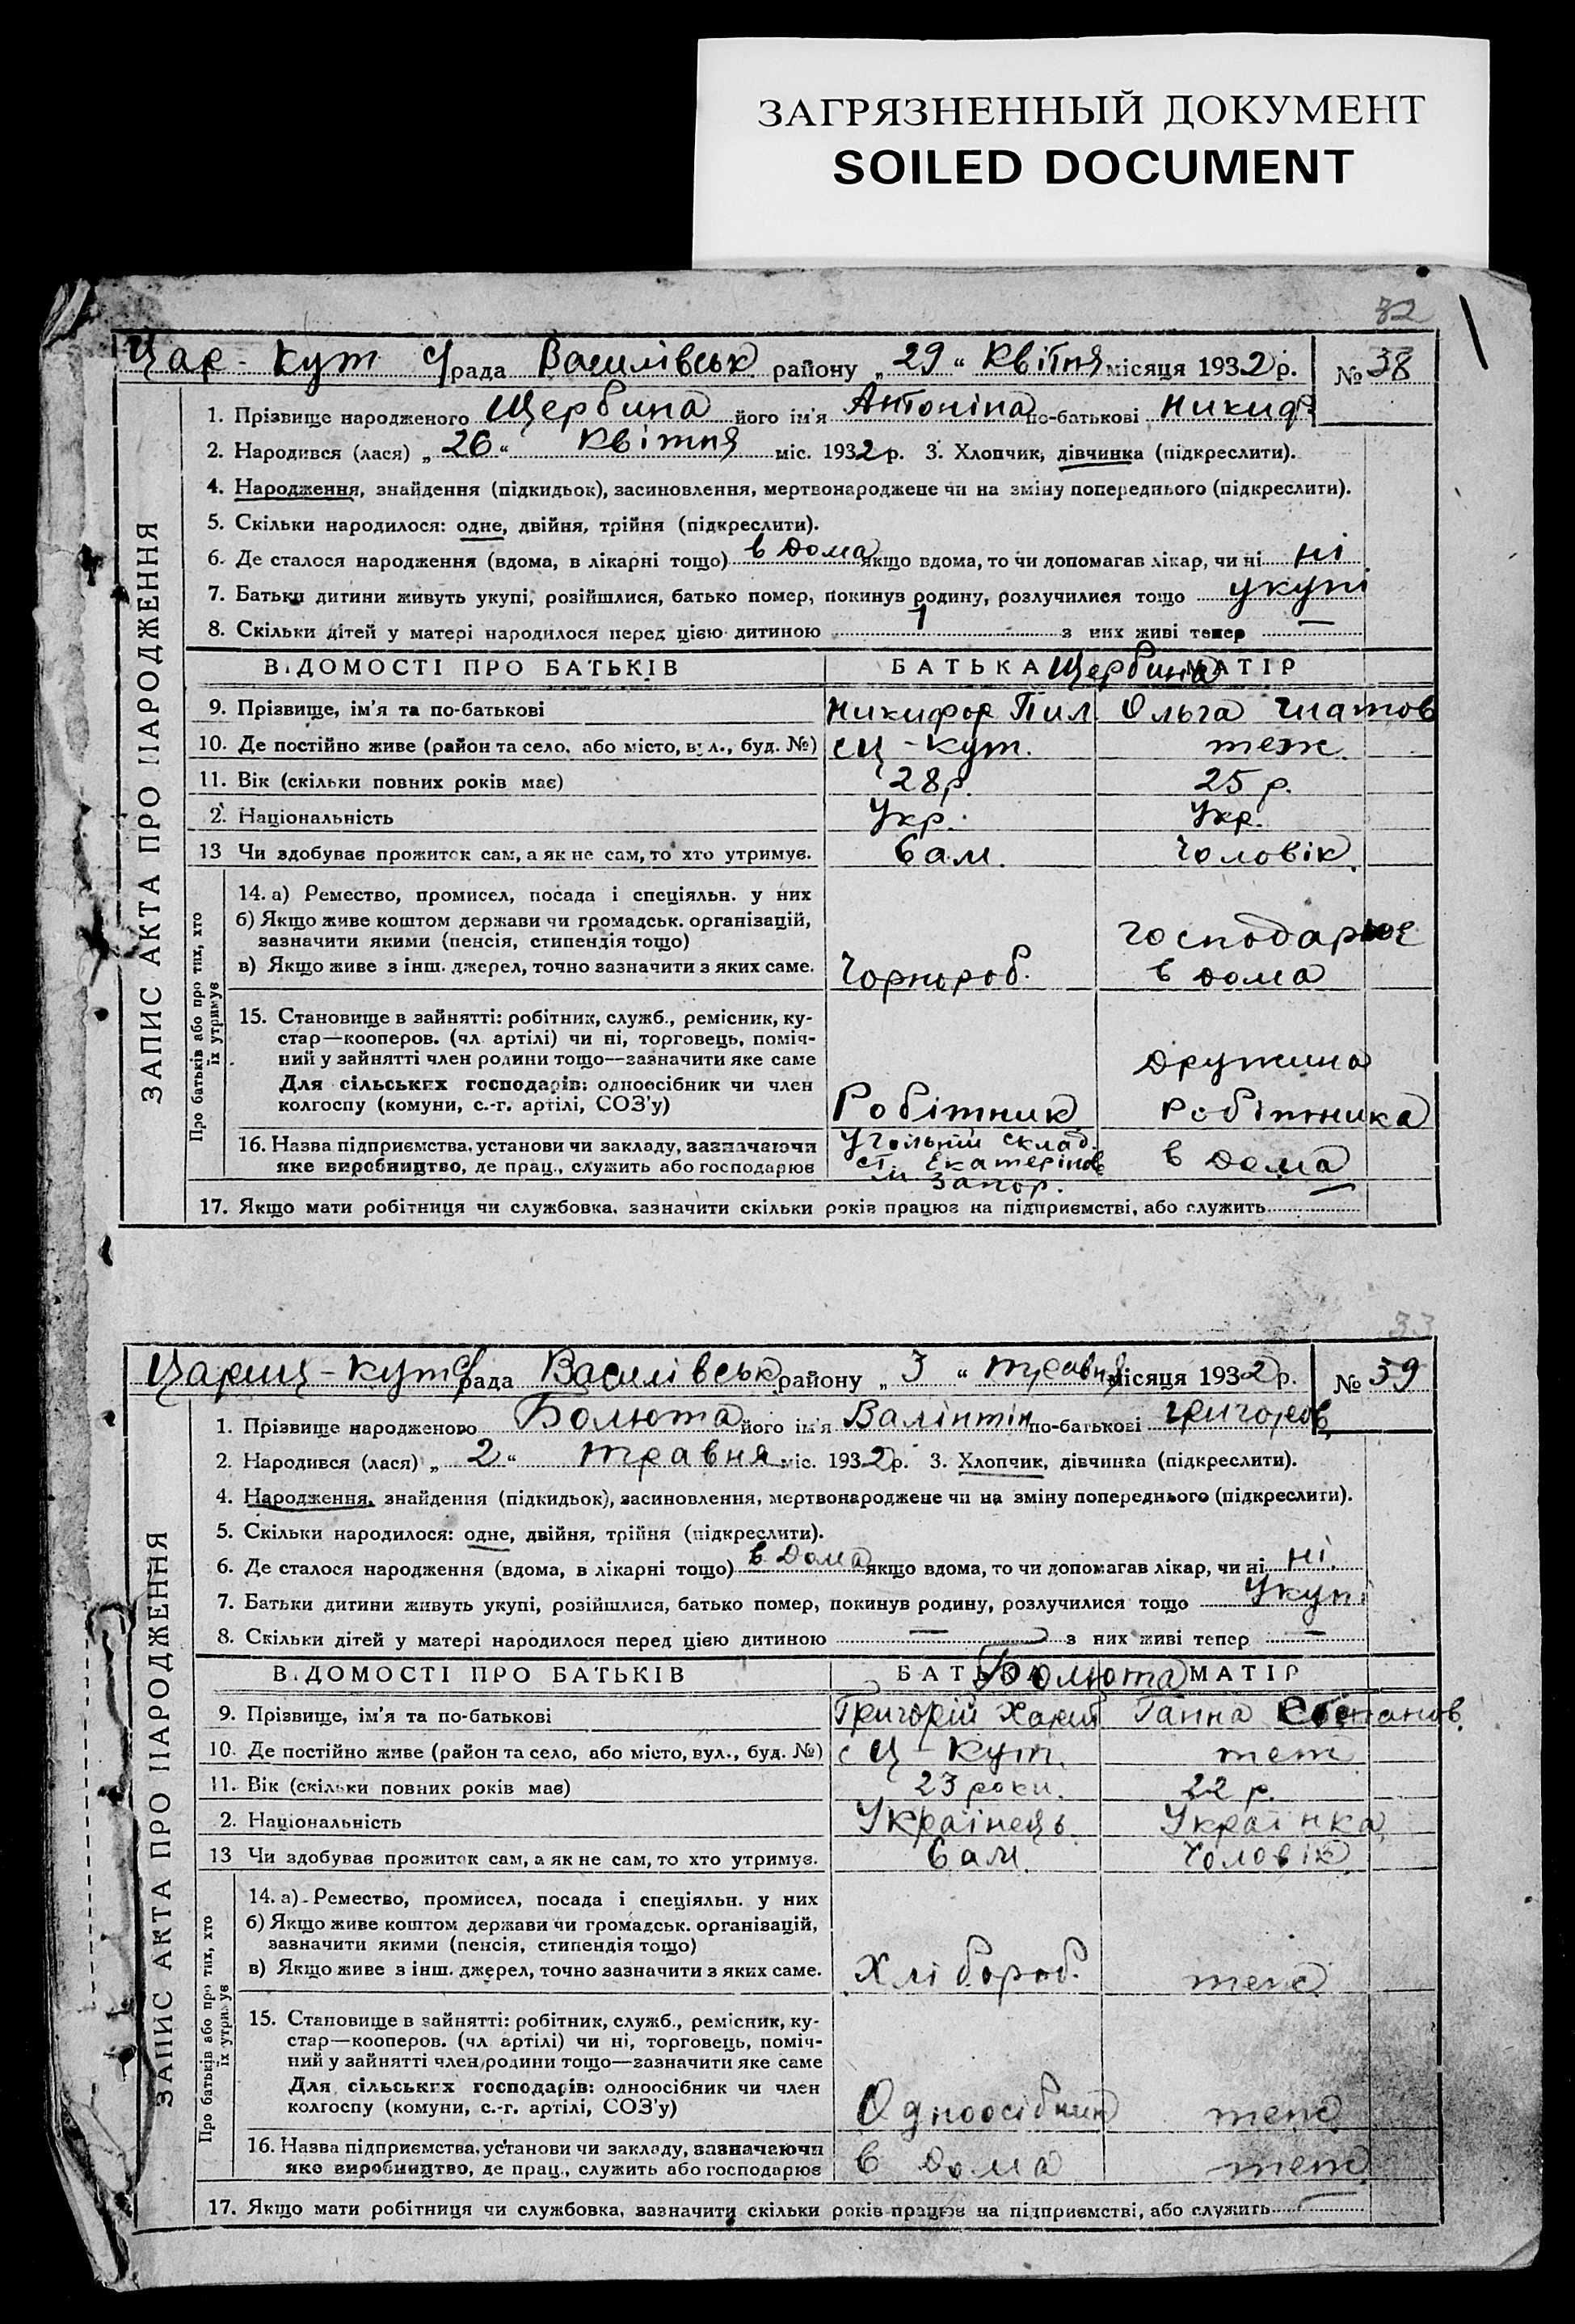 ЗАГРЯЗНЕННЫЙ ДОКУМЕНТ
SOILED DOCUMENT
32
Цар - Кут с/рада Василівськ району „29“ Квітня місяця 1932 р. № 38
1. Прізвище народженого Щербина його ім'я Антоніна по-батькові Никиф.
2. Народився (лася) „26“ Квітня міс. 1932 р. 3. Хлопчик, дівчинка (підкреслити).
4. Народження, знайдення (підкидьок), засиновлення, мертвонароджене чи на зміну попереднього (підкреслити).
5. Скільки народилося: одне, двійня, трійня (підкреслити).
6. Де сталося народження (вдома, в лікарні тощо) в дома якщо вдома, то чи допомагав лікар, чи ні ні
7. Батьки дитини живуть укупі, розійшлися, батько помер, покинув родину, розлучилися тощо укупі
8. Скільки дітей у матері народилося перед цією дитиною 1 з них живі тепер —
ВІДОМОСТІ ПРО БАТЬКІВ БАТЬКА Щербина МАТІР
9. Прізвище, ім'я та по-батькові Никифор Пил. Ольга Гнатов
10. Де постійно живе (район та село, або місто, вул., буд. №) с Ц - Кут. теж.
11. Вік (скільки повних років має) 28 р. 25 р.
2. Національність Укр. Укр.
13 Чи здобуває прожиток сам, а як не сам, то хто утримує. Сам. Чоловік.
14. а) Ремество, промисел, посада і спеціяльн. у них
б) Якщо живе коштом держави чи громадськ. організацій,
зазначити якими (пенсія, стипендія тощо) господарює
в) Якщо живе з інш. джерел, точно зазначити з яких саме. Чорнороб. в дома
15. Становище в зайнятті: робітник, служб., ремісник, ку-
стар—кооперов. (чл артілі) чи ні, торговець, поміч-
ний у зайнятті член родини тощо—зазначити яке саме дружина
Для сільських господарів: одноосібник чи член
колгоспу (комуни, с.-г. артілі, СОЗ'у) Робітник робітника
16. Назва підприємства, установи чи закладу, зазначаючи Угольній склад.
яке виробництво, де прац., служить або господарює ст. Екатерінов в дома
м Запор.
17. Якщо мати робітниця чи службовка, зазначити скільки років працює на підприємстві, або служить —
Про батьків або про тих, хто їх утримує
ЗАПИС АКТА ПРО НАРОДЖЕННЯ
33
Цариц - Кут с/рада Василівськ району „3“ травня місяця 1932 р. № 39
1. Прізвище народженого Болюта його ім'я Валінтін по-батькові Григоров.
2. Народився (лася) „2“ травня міс. 1932 р. 3. Хлопчик, дівчинка (підкреслити).
4. Народження, знайдення (підкидьок), засиновлення, мертвонароджене чи на зміну попереднього (підкреслити).
5. Скільки народилося: одне, двійня, трійня (підкреслити).
6. Де сталося народження (вдома, в лікарні тощо) в дома якщо вдома, то чи допомагав лікар, чи ні ні.
7. Батьки дитини живуть укупі, розійшлися, батько помер, покинув родину, розлучилися тощо Укупі
8. Скільки дітей у матері народилося перед цією дитиною — з них живі тепер —
ВІДОМОСТІ ПРО БАТЬКІВ БАТЬКА Болюта МАТІР
9. Прізвище, ім'я та по-батькові Григорій Ганна
10. Де постійно живе (район та село, або місто, вул., буд. №) с Ц - Кут. теж
11. Вік (скільки повних років має) 23 роки. 22 р.
2. Національність Українець. Українка
13 Чи здобуває прожиток сам, а як не сам, то хто утримує. Сам. Чоловік
14. а) Ремество, промисел, посада і спеціяльн. у них
б) Якщо живе коштом держави чи громадськ. організацій,
зазначити якими (пенсія, стипендія тощо)
в) Якщо живе з інш. джерел, точно зазначити з яких саме. Хлібороб. теж
15. Становище в зайнятті: робітник, служб., ремісник, ку-
стар—кооперов. (чл артілі) чи ні, торговець, поміч-
ний у зайнятті член родини тощо—зазначити яке саме
Для сільських господарів: одноосібник чи член
колгоспу (комуни, с.-г. артілі, СОЗ'у) Одноосібник теж
16. Назва підприємства, установи чи закладу, зазначаючи
яке виробництво, де прац., служить або господарює в дома теж
17. Якщо мати робітниця чи службовка, зазначити скільки років працює на підприємстві, або служить —
Про батьків або про тих, хто їх утримує
ЗАПИС АКТА ПРО НАРОДЖЕННЯ